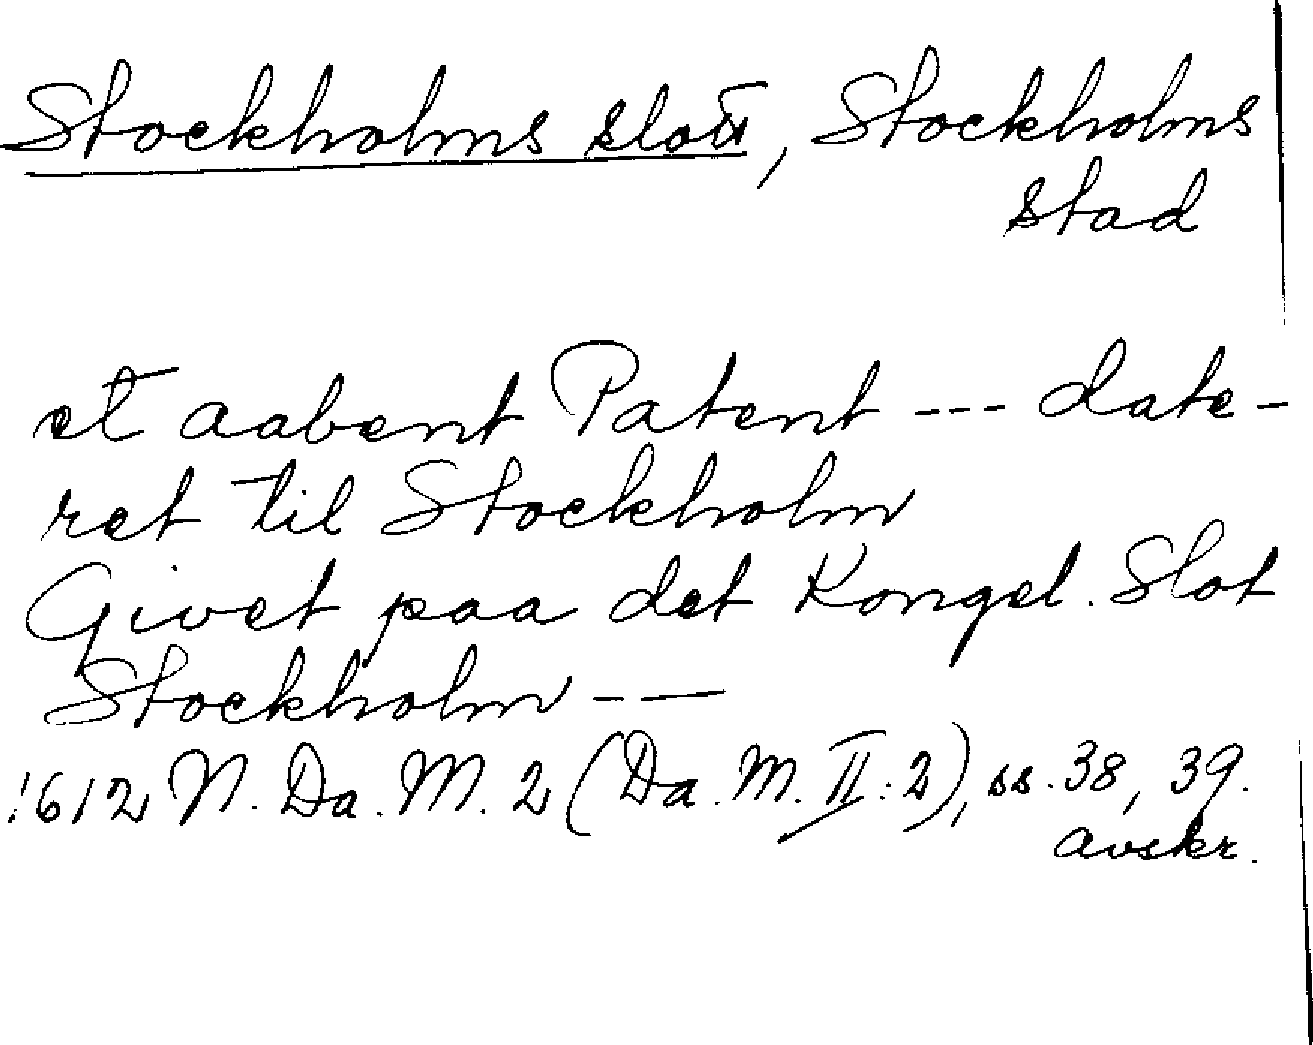 Stockholms slott, Stockholms
stad
et aabent Patent --- date-
ret til Stockholm
Givet paa det Kongel. Slot
Stockholm ---
1612 N. Da. M. 2 (Da. M. II:2), ss. 38, 39.
avskr.